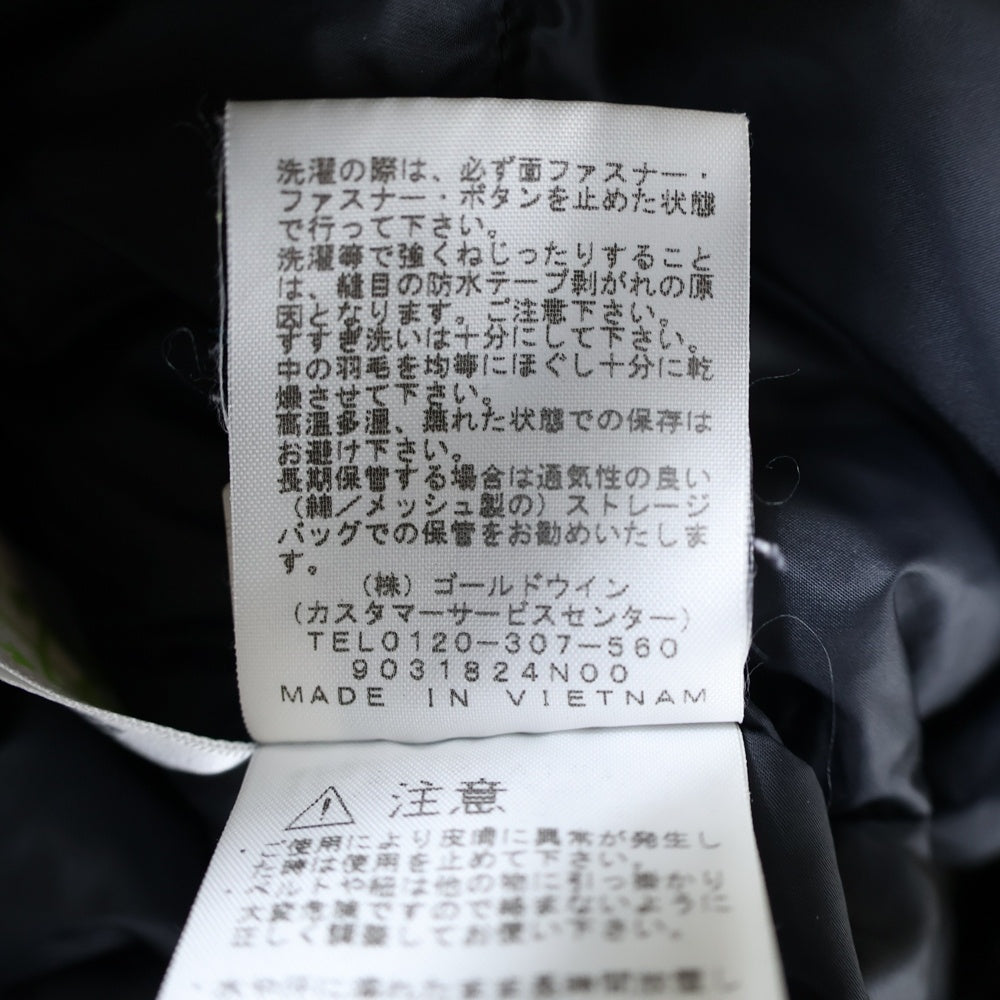 洗濯の際は、必ず面ファスナー・
ファスナー・ボタンを止めた状態
で行って下さい。
洗濯等で強くねじったりすること
は、縫目の防水テープ剥がれの原
因となります。ご注意下さい。
すすぎ洗いは十分にして下さい。
中の羽毛を均等にほぐし十分に乾
燥させて下さい。
高温多湿、蒸れた状態での保存は
お避け下さい。
長期保管する場合は通気性の良い
(綿/メッシュ製の)ストレージ
バッグでの保管をお勧めいたしま
す。
(株)ゴールドウイン
(カスタマーサービスセンター)
TEL0120-307-560
9031824N00
MADE IN VIETNAM
注意
・ご使用により皮膚に異常が発生し
た時は使用を止めて下さい。
・ベルトや紐は他の物に引っ掛かり
大変危険ですので絡まないように
正しく調整してお使い下さい。